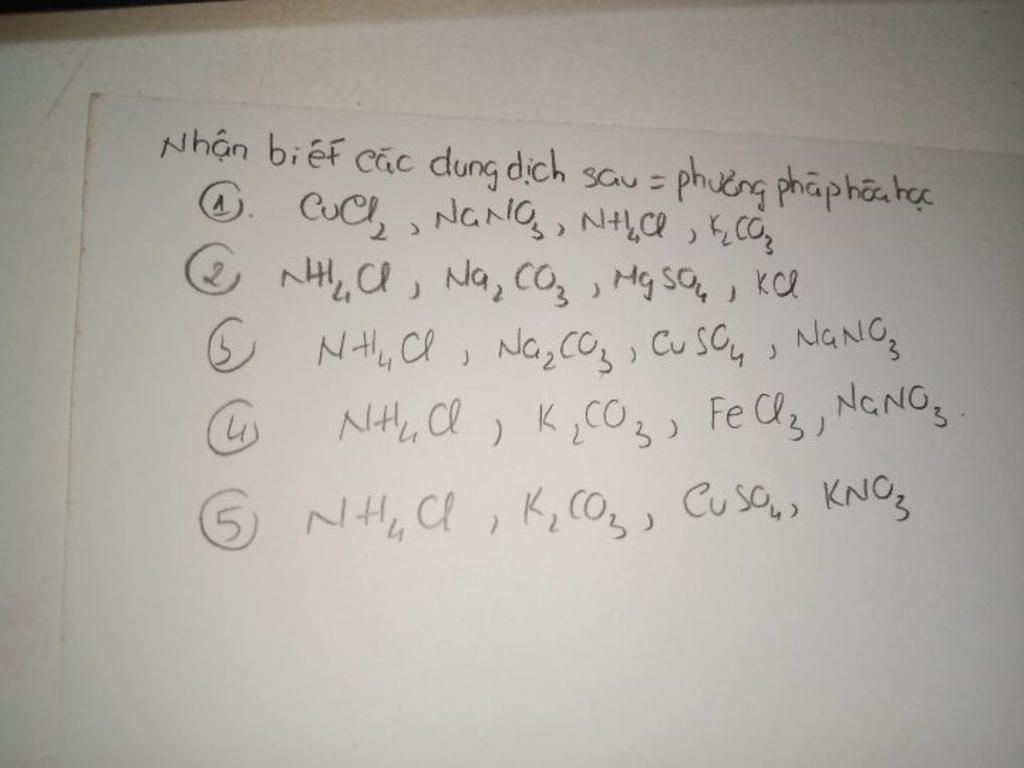 Nhận biết các dung dịch sau = phương pháp hóa học
①. CuCl₂, NaNO₃, NH₄Cl, K₂CO₃
② NH₄Cl, Na₂CO₃, MgSO₄, KCl
③ NH₄Cl, Na₂CO₃, CuSO₄, NaNO₃
④ NH₄Cl, K₂CO₃, FeCl₃, NaNO₃.
⑤ NH₄Cl, K₂CO₃, CuSO₄, KNO₃